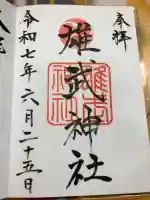 奉拝
雄武神社
令和七年六月二十五日